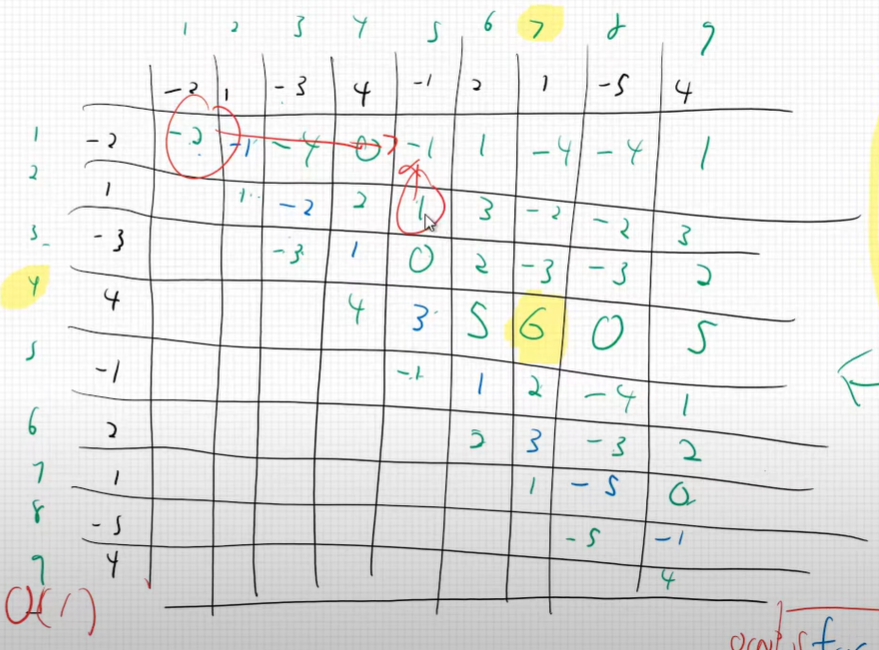 1 2 3 4 5 6 7 8 9
-2 1 -3 4 -1 2 1 -5 4
1 -2 -2 -1 -4 0 -1 1 -4 -4 1
2 1 1 -2 2 1 3 -2 -2 3
3 -3 -3 1 0 2 -3 -3 2
4 4 4 3 5 6 0 5
5 -1 -1 1 2 -4 1
6 2 2 3 -3 2
7 1 1 -5 0
8 -5 -5 -1
9 4 4
O(1)